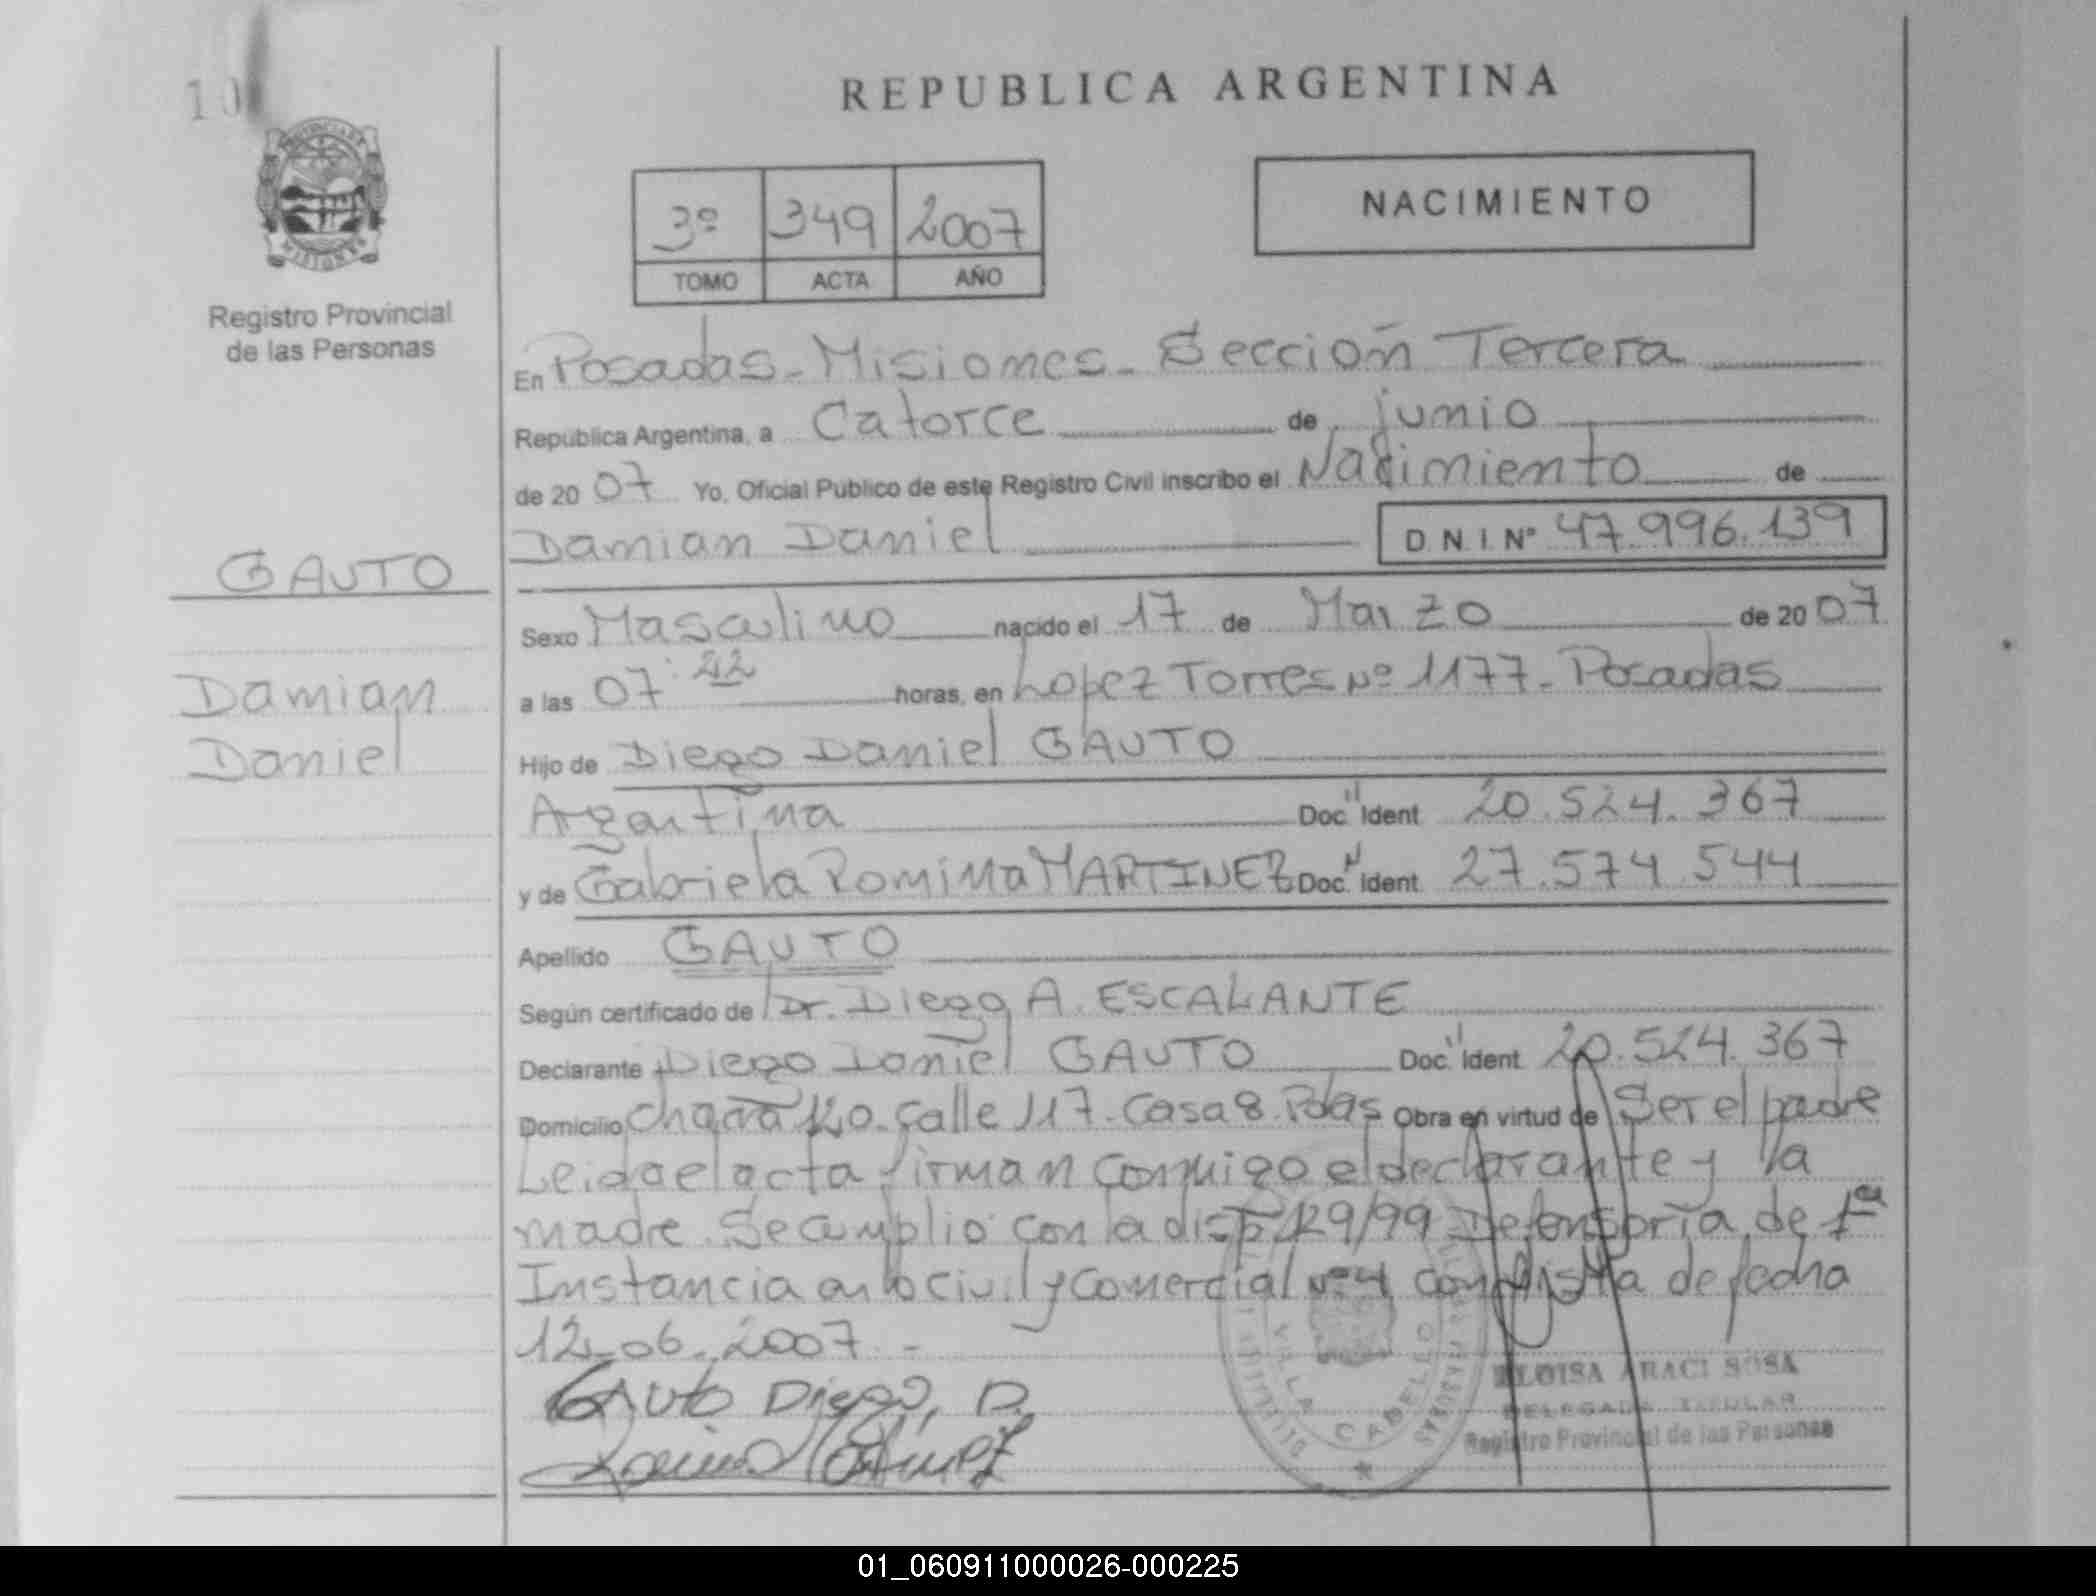 REPUBLICA ARGENTINA
PROVINCIA DE
MISIONES
Registro Provincial
de las Personas
NACIMIENTO
3º 349 2007
TOMO ACTA AÑO
En Posadas - Misiones - Sección Tercera
República Argentina, a Catorce de junio
de 20 07 Yo, Oficial Publico de este Registro Civil inscribo el Nacimiento de
Damian Daniel D.N.I. Nº 47.996.139
GAUTO
Damian
Daniel
Sexo Masculino nacido el 17 de Marzo de 20 07
a las 07:22 horas, en Lopez Torres Nº 1177 - Posadas
Hijo de Diego Daniel GAUTO
Argentina Doc. Ident 20.524.367
y de Gabriela Romina MARTINEZ Doc. Ident 27.574.544
Apellido GAUTO
Según certificado de Dr. Diego A. ESCALANTE
Declarante Diego Daniel GAUTO Doc. Ident 20.524.367
Domicilio Chacra 120. Calle 117. Casa 8. Pdas Obra en virtud de Ser el padre
Leida el acta firman conmigo el declarante y la
madre. Se cumplio con la disp 129/99 Defensoria de 1ª
Instancia en lo Civil y Comercial Nº 4 con de fecha
12-06-2007.-
Gauto Diego, D.
VILLA CABELLO
ELOISA ARACI SOSA
DELEGADA TITULAR
Registro Provincial de las Personas
01_060911000026-000225